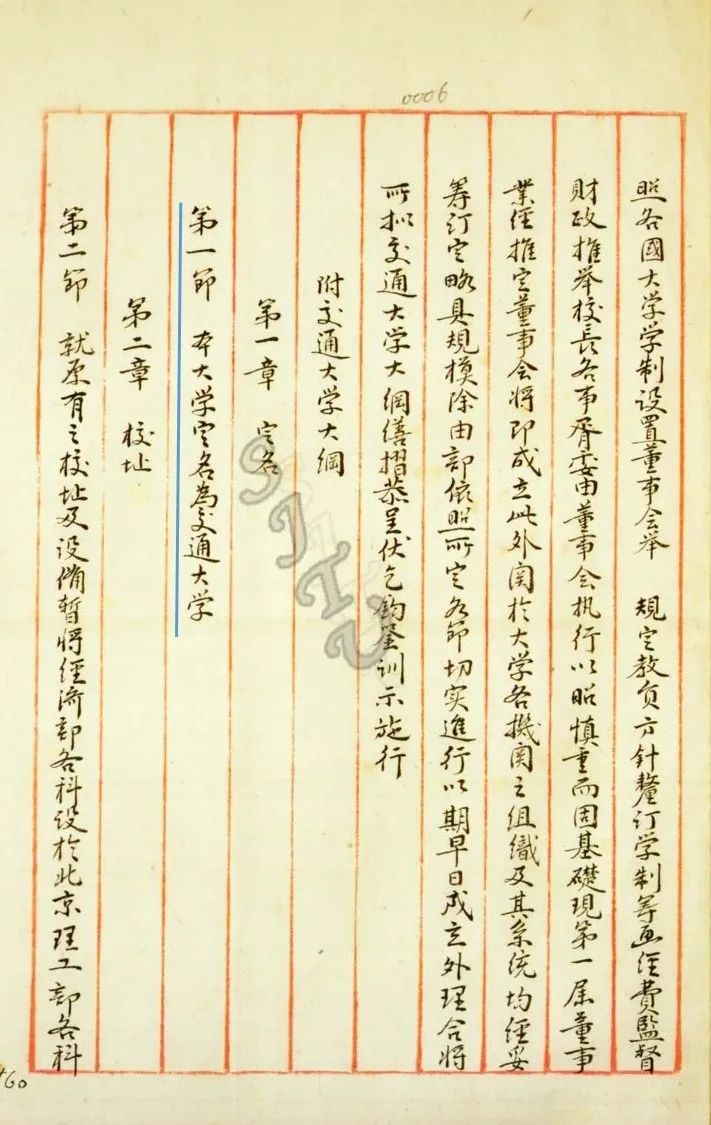 0006
照各國大学学制設置董事会举 規定教育方针釐订学制筹画经費監督
財政推举校長各事胥委由董事会执行以昭慎重而固基礎現第一届董事
業经推定董事会将即成立此外関於大学各機関之组織及其系统均经妥
筹订定略具規模除由部依照所定各節切实進行以期早日成立外理合将
所拟交通大学大綱缮摺恭呈伏乞鈞鉴训示施行
附交通大学大綱
第一章 定名
第一節 本大学定名為交通大学
第二章 校址
第二節 就原有之校址及设備暫将经济部各科设於北京理工部各科
SJTU
160